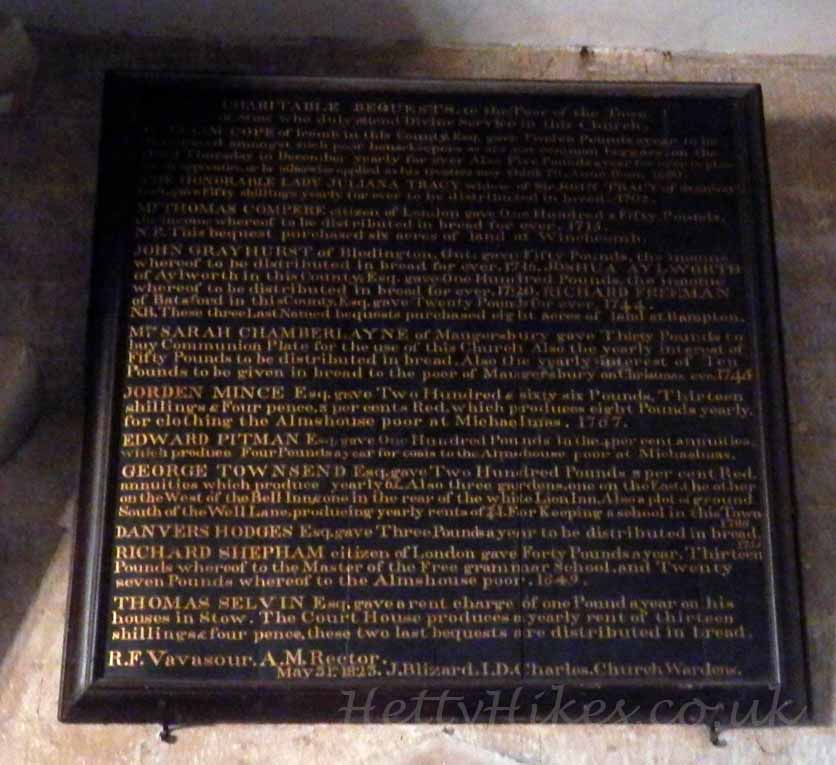 CHARITABLE BEQUESTS, to the Poor of the Town
of Stow who duly attend Divine Service in this Church,
COPE of Icomb in this County, Esq. gave Twelve Pounds a year to be
amongst such poor housekeepers as are not common beggars, on the
Thursday in December yearly for ever Also Five Pounds a year for
or be otherwise applied as his trustees may think fit, Anno Dom. 1680.
THE HONORABLE LADY JULIANA TRACY widow of Sir JOHN TRACY of Stanway
gave Fifty shillings yearly for ever to be distributed in bread. 1702.
Mr THOMAS COMPERE citizen of London gave One Hundred & Fifty Pounds,
the income whereof to be distributed in bread for ever. 1715.
N.B. This bequest purchased six acres of land at Winchcomb.
JOHN GRAYHURST of Bledington, Gnt. gave Fifty Pounds, the income
whereof to be distributed in bread for ever. JOSHUA AYLWORTH
of Aylworth in this County, Esq. gave One Hundred Pounds, the income
whereof to be distributed in bread for ever. 1720. RICHARD FREEMAN
of Batsford in this County, Esq. gave Twenty Pounds for ever.
N.B. These three Last Named bequests purchased eight acres of land at Bampton.
Mrs SARAH CHAMBERLAYNE of Maugersbury gave Thirty Pounds to
buy Communion Plate for the use of this Church Also the yearly interest of
Fifty Pounds to be distributed in bread. Also the yearly interest of Ten
Pounds to be given in bread to the poor of Maugersbury on Christmas eve.
JORDEN MINCE Esq. gave Two Hundred & sixty six Pounds, Thirteen
shillings & Four pence, 3 per cents Red. which produces eight Pounds yearly,
for clothing the Almshouse poor at Michaelmas. 1767.
EDWARD PITMAN Esq. gave One Hundred Pounds in the 4 per cent annuities,
which produce Four Pounds a year for coats to the Almshouse poor at Michaelmas.
GEORGE TOWNSEND Esq. gave Two Hundred Pounds 3 per cent Red.
annuities which produce yearly Also three gardens, one on the East & the other
on the West of the Bell Inn & one in the rear of the white Lion Inn, Also a plot of ground
South of the Well Lane, producing yearly rents of For Keeping a school in this Town
DANVERS HODGES Esq. gave Three Pounds a year to be distributed in bread.
RICHARD SHEPHAM citizen of London gave Forty Pounds a year, Thirteen
Pounds whereof to the Master of the Free grammar School, and Twenty
seven Pounds whereof to the Almshouse poor.
THOMAS SELVIN Esq. gave a rent charge of one Pound a year on his
houses in Stow. The Court House produces a yearly rent of thirteen
shillings & four pence, these two last bequests are distributed in bread.
R.F. Vavasour. A.M. Rector.
May 31st 1823. J. Blizard. I.D. Charles. Church Wardens.
HettyHikes.co.uk